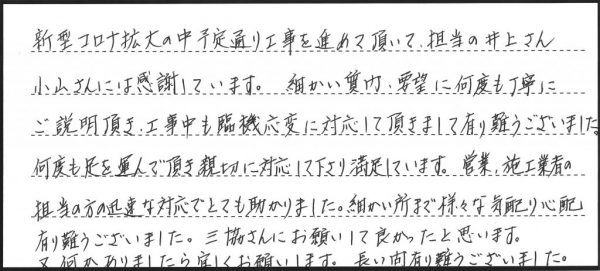 新型コロナ拡大の中予定通り工事を進めて頂いて、担当の井上さん
小山さんには感謝しています。細かい質問、要望に何度も丁寧に
ご説明頂き、工事中も臨機応変に対応して頂きまして有り難うございました。
何度も足を運んで頂き親切に対応して下さり満足しています。営業、施工業者の
担当の方の迅速な対応でとても助かりました。細かい所まで様々な気配り心配
有り難うございました。三協さんにお願いして良かったと思います。
又何かありましたら宜しくお願いします。長い間有り難うございました。